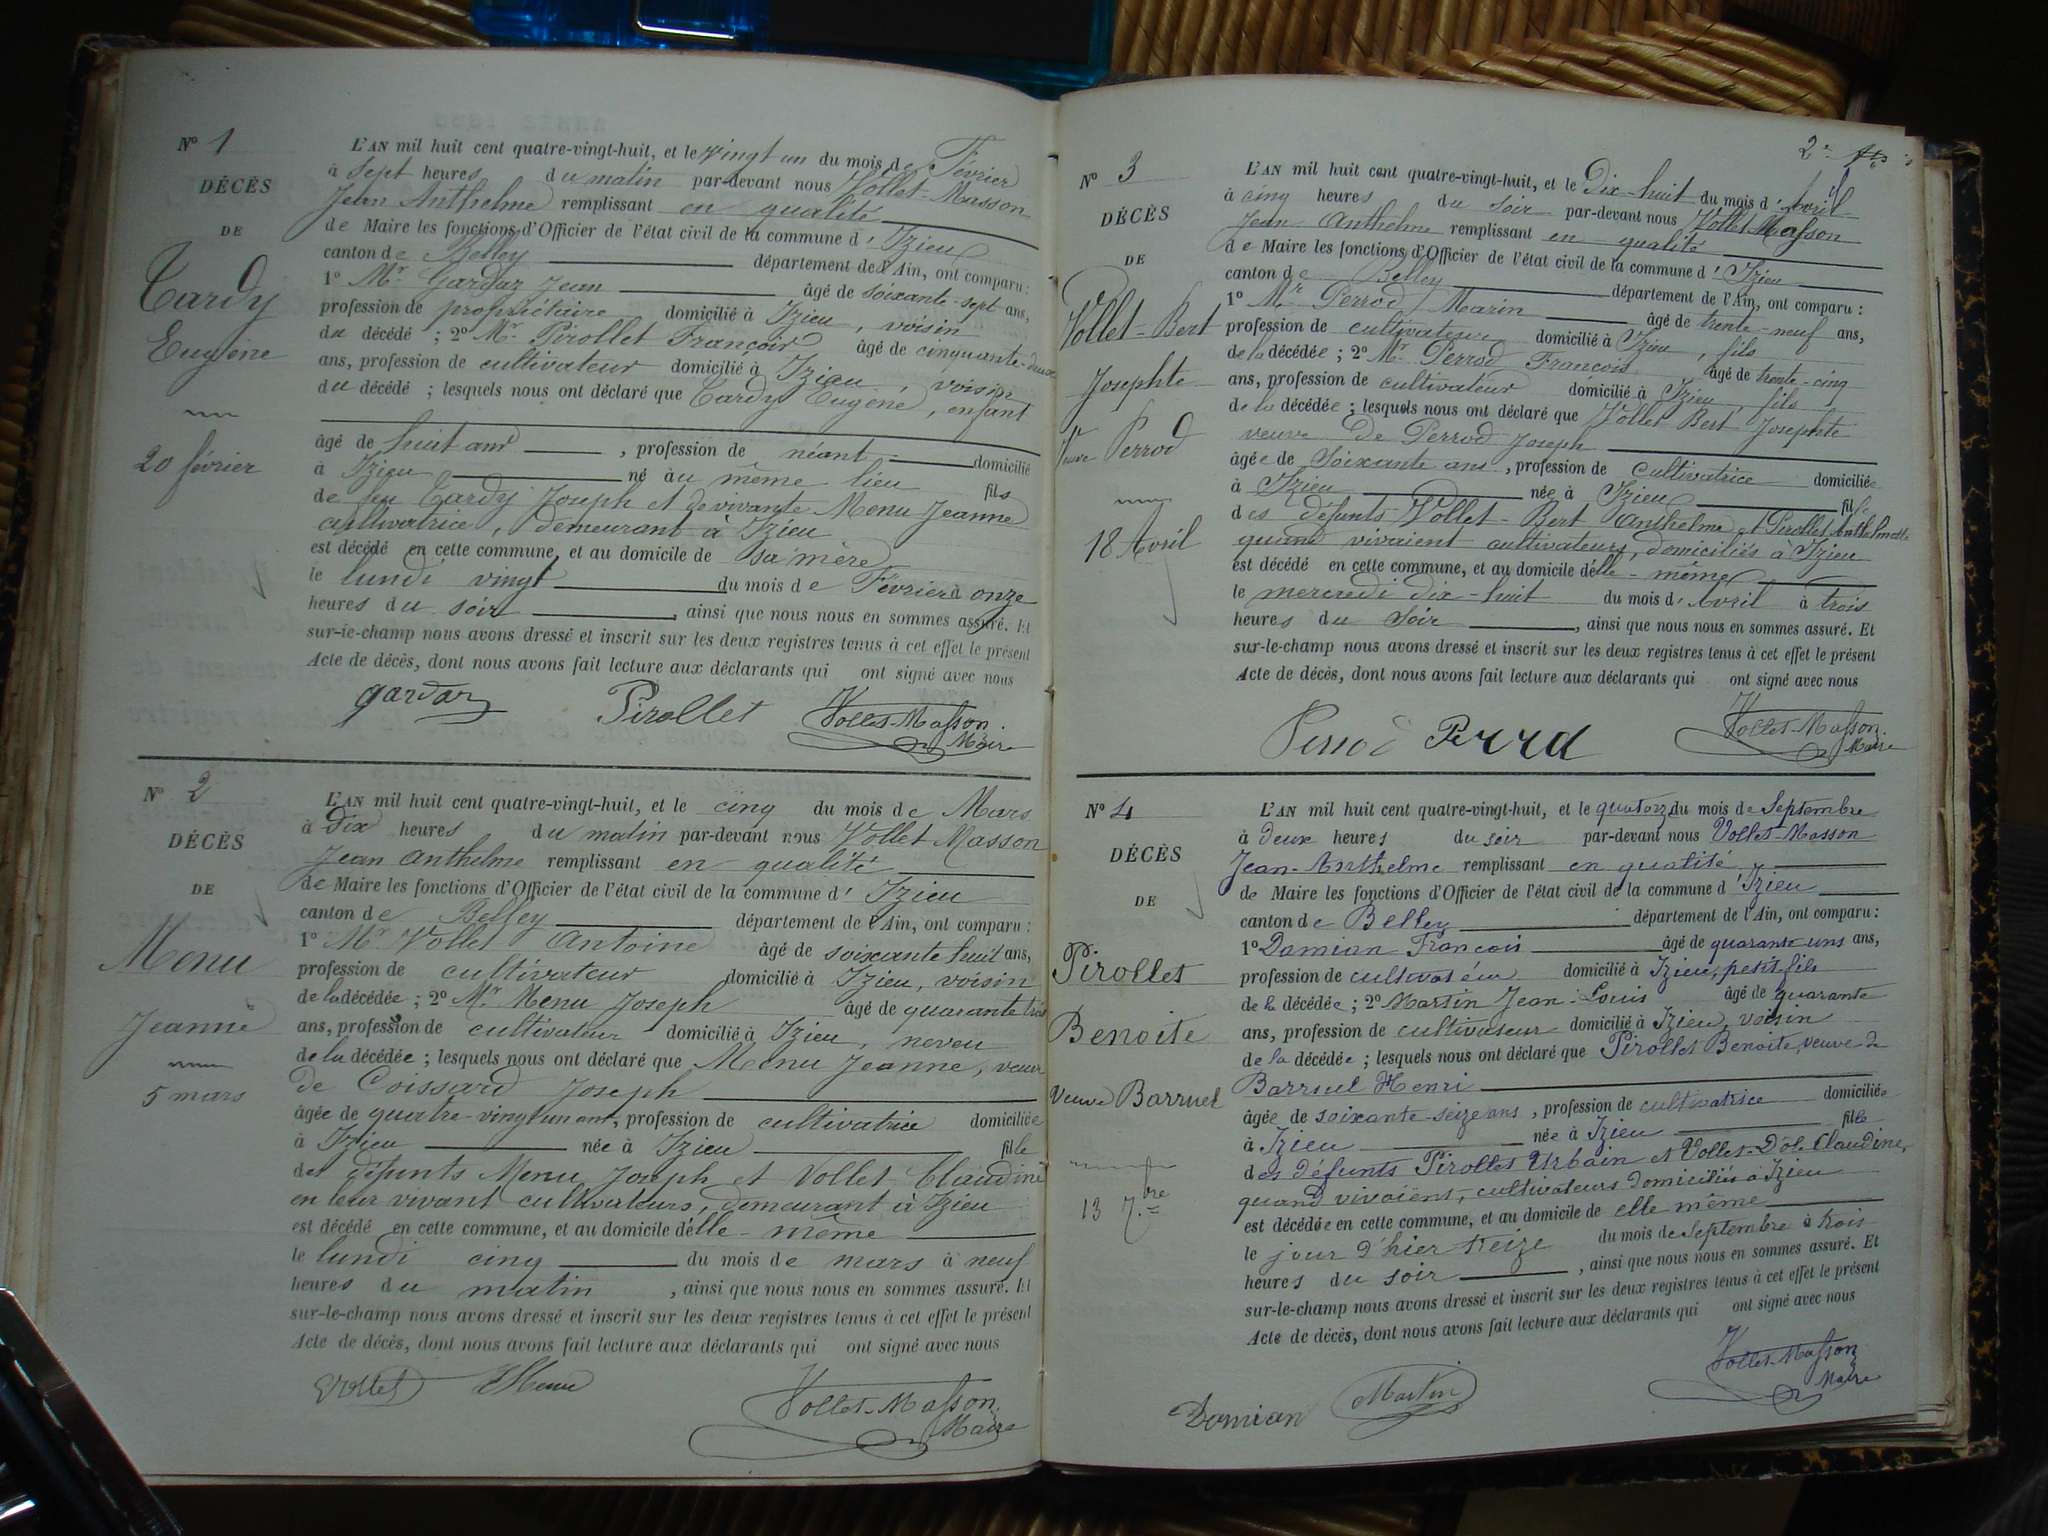 N° 1
DÉCÈS
DE
Tardy
Eugène
20 février
L'AN mil huit cent quatre-vingt-huit, et le vingt un du mois de Février
à sept heures du matin par-devant nous Vollet-Masson
Jean Anthelme remplissant en qualité
de Maire les fonctions d'Officier de l'état civil de la commune d'Izieu
canton de Belley département de l'Ain, ont comparu :
1° Mr Gardaz Jean âgé de soixante-sept ans,
profession de propriétaire domicilié à Izieu, voisin
du décédé ; 2° Mr Pirollet François âgé de cinquante-deux
ans, profession de cultivateur domicilié à Izieu, voisin
du décédé ; lesquels nous ont déclaré que Tardy Eugène, enfant
âgé de huit ans, profession de néant domicilié
à Izieu né au même lieu fils
de feu Tardy Joseph et de vivante Menu Jeanne
cultivatrice, demeurant à Izieu
est décédé en cette commune, et au domicile de sa mère
le lundi vingt du mois de Février à onze
heures du soir, ainsi que nous nous en sommes assuré. Et
sur-le-champ nous avons dressé et inscrit sur les deux registres tenus à cet effet le présent
Acte de décès, dont nous avons fait lecture aux déclarants qui ont signé avec nous
gardaz Pirollet Vollet-Masson
Maire
N° 2
DÉCÈS
DE
Menu
Jeanne
5 mars
L'AN mil huit cent quatre-vingt-huit, et le cinq du mois de Mars
à Dix heures du matin par-devant nous Vollet Masson
Jean Anthelme remplissant en qualité
de Maire les fonctions d'Officier de l'état civil de la commune d'Izieu
canton de Belley département de l'Ain, ont comparu :
1° Mr Vollet Antoine âgé de soixante huit ans,
profession de cultivateur domicilié à Izieu, voisin
de la décédée ; 2° Mr Menu Joseph âgé de quarante trois
ans, profession de cultivateur domicilié à Izieu, neveu
de la décédée ; lesquels nous ont déclaré que Menu Jeanne, veuve
de Coissard Joseph
âgée de quatre-vingt un ans, profession de cultivatrice domiciliée
à Izieu née à Izieu fille
des défunts Menu Joseph et Vollet Claudine
en leur vivant cultivateurs, demeurant à Izieu
est décédé en cette commune, et au domicile d'elle-même
le lundi cinq du mois de mars à neuf
heures du matin, ainsi que nous nous en sommes assuré. Et
sur-le-champ nous avons dressé et inscrit sur les deux registres tenus à cet effet le présent
Acte de décès, dont nous avons fait lecture aux déclarants qui ont signé avec nous
Vollet Menu Vollet-Masson
Maire
N° 3
DÉCÈS
DE
Vollet-Bert
Josephte
Veuve Perrod
18 Avril
L'AN mil huit cent quatre-vingt-huit, et le Dix-huit du mois d'Avril
à cinq heures du soir par-devant nous Vollet Masson
Jean Anthelme remplissant en qualité
de Maire les fonctions d'Officier de l'état civil de la commune d'Izieu
canton de Belley département de l'Ain, ont comparu :
1° Mr Perrod Marin âgé de trente-neuf ans,
profession de cultivateur domicilié à Izieu, fils
de la décédée ; 2° Mr Perrod François âgé de trente-cinq
ans, profession de cultivateur domicilié à Izieu, fils
de la décédée ; lesquels nous ont déclaré que Vollet Bert Josephte
veuve de Perrod Joseph
âgée de Soixante ans, profession de cultivatrice domiciliée
à Izieu née à Izieu fille
des défunts Vollet-Bert Anthelme et Pirollet Anthelmette
quand vivaient cultivateurs, domiciliés à Izieu
est décédé en cette commune, et au domicile d'elle-même
le mercredi dix-huit du mois d'Avril à trois
heures du Soir, ainsi que nous nous en sommes assuré. Et
sur-le-champ nous avons dressé et inscrit sur les deux registres tenus à cet effet le présent
Acte de décès, dont nous avons fait lecture aux déclarants qui ont signé avec nous
Perrod Perrd Vollet-Masson
Maire
N° 4
DÉCÈS
DE
Pirollet
Benoite
Veuve Barruel
13 7.bre
L'AN mil huit cent quatre-vingt-huit, et le quatorze du mois de Septembre
à deux heures du soir par-devant nous Vollet-Masson
Jean-Anthelme remplissant en qualité
de Maire les fonctions d'Officier de l'état civil de la commune d'Izieu
canton de Belley département de l'Ain, ont comparu :
1° Damian François âgé de quarante uns ans,
profession de cultivateur domicilié à Izieu, petit fils
de la décédée ; 2° Martin Jean-Louis âgé de quarante
ans, profession de cultivateur domicilié à Izieu, voisin
de la décédée ; lesquels nous ont déclaré que Pirollet Benoite, veuve de
Barruel Henri
âgée de soixante-seize ans, profession de cultivatrice domiciliée
à Izieu née à Izieu fille
des défunts Pirollet Urbain et Vollet-Dol. Claudine,
quand vivaient, cultivateurs domiciliés à Izieu
est décédée en cette commune, et au domicile de elle même
le jour d'hier treize du mois de Septembre à trois
heures du soir, ainsi que nous nous en sommes assuré. Et
sur-le-champ nous avons dressé et inscrit sur les deux registres tenus à cet effet le présent
Acte de décès, dont nous avons fait lecture aux déclarants qui ont signé avec nous
Damian Martin Vollet-Masson
Maire